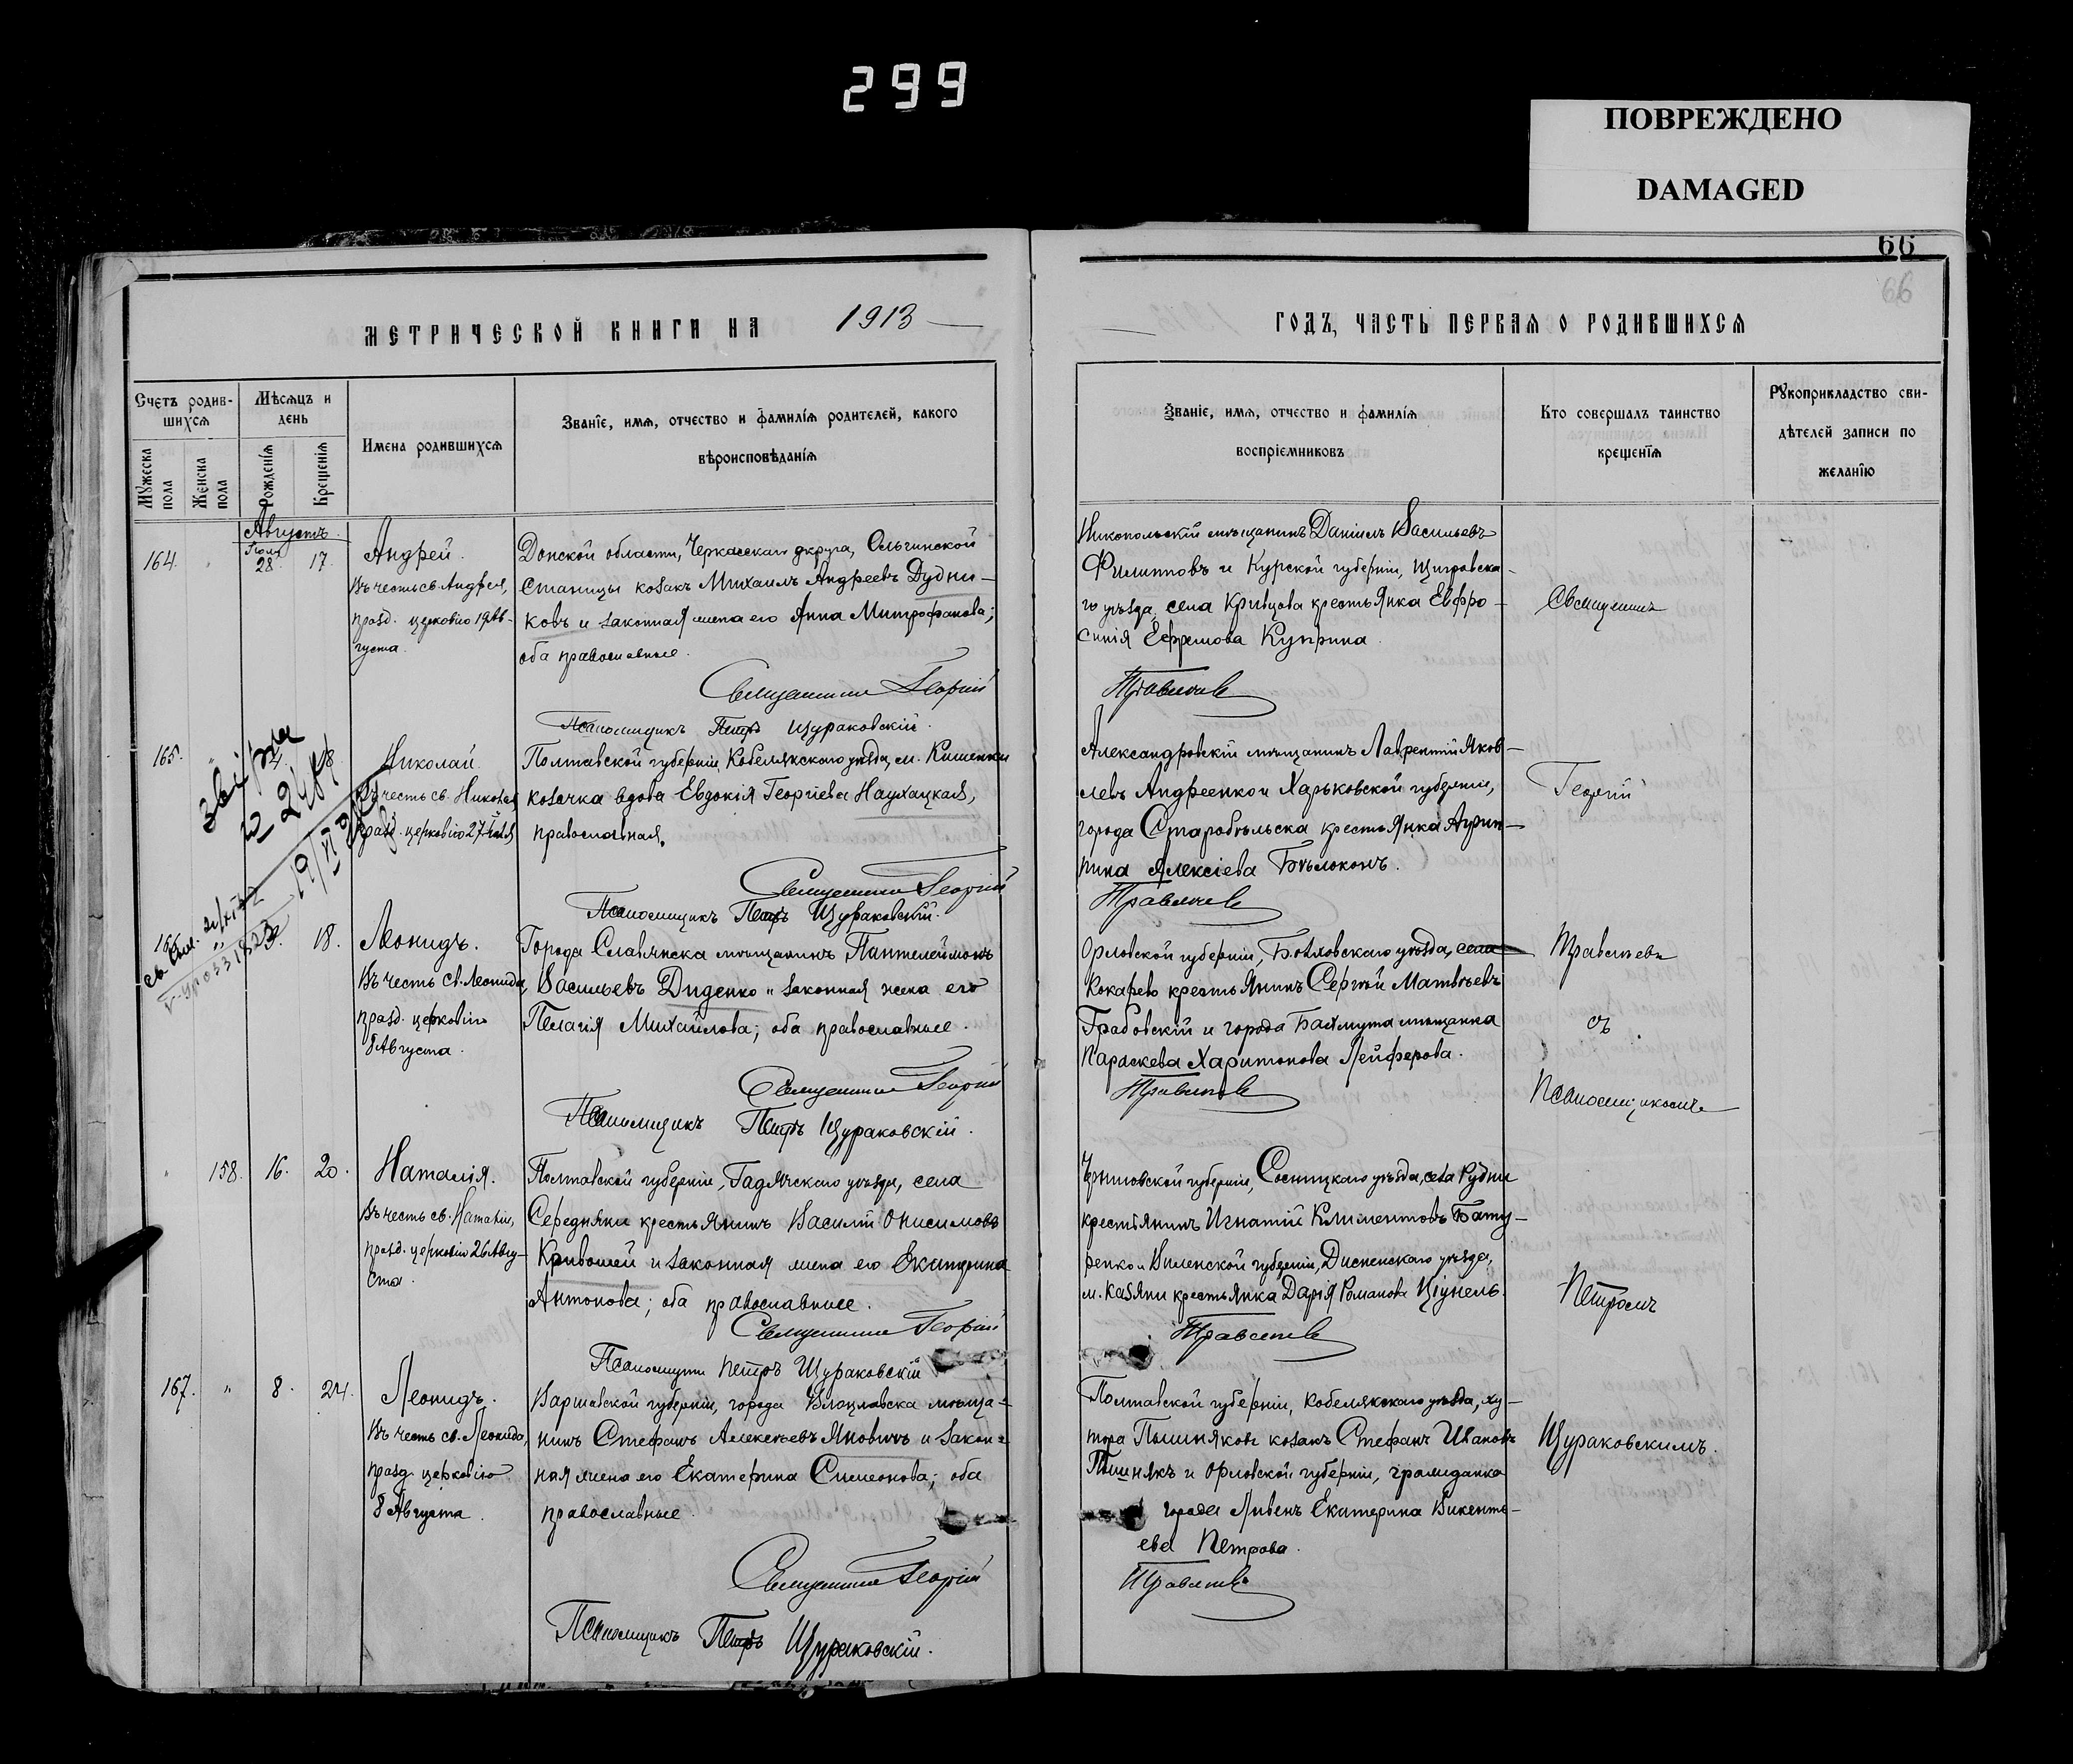 299
ПОВРЕЖДЕНО
DAMAGED
66
66
МЕТРИЧЕСКОЙ КНИГИ НА 1913
ГОДЪ, ЧАСТЬ ПЕРВАЯ О РОДИВШИХСЯ
Счетъ родив-
шихся
Мужеска пола
Женска пола
Мѣсяцъ и
день
Рожденія
Крещенія
Имена родившихся
Званіе, имя, отчество и фамилія родителей, какого
вѣроисповѣданія
Званіе, имя, отчество и фамилія
воспріемниковъ
Кто совершалъ таинство
крещенія
Рукоприкладство сви-
дѣтелей записи по
желанію
Августъ.
164. Іюля 28. 17.
Андрей.
Въ честь св. Андрея,
празд. церковію 19 Ав-
густа.
Донской области, Черкасскаго округа, Ольгинской
станицы козакъ Михаилъ Андреевъ Дудни-
ковъ и законная жена его Анна Митрофанова;
оба православные.
Священникъ Георгій
Псаломщикъ Петръ Щураковскій.
Никопольскій мѣщанинъ Даніилъ Васильевъ
Филипповъ и Курской губерніи, Щигровска-
го уѣзда, села Кривцова крестьянка Евфро-
синія Ефремова Куприна.
Правелевъ
165. 18
Николай.
Въ честь св. Николая
празд. церковію 27 Іюля
Полтавской губерніи, Кобелякскаго уѣзда, м. Кишенки
козачка вдова Евдокія Георгіева Наухацкая,
православная.
Священникъ Георгій
Псаломщикъ Петръ Щураковскій.
Александровскій мѣщанинъ Лаврентій Яков-
левъ Андреенко и Харьковской губерніи,
города Старобѣльска крестьянка Агрип-
пина Алексіева Бѣлоконъ.
166. 18.
Леонидъ.
Въ честь св. Леонида,
празд. церковію
8 Августа.
Города Славянска мѣщанинъ Пантелеймонъ
Васильевъ Диденко и законная жена его
Пелагія Михайлова; оба православные.
Священникъ Георгій
Псаломщикъ Петръ Щураковскій.
Орловской губерніи, Болховскаго уѣзда, села
Кокарево крестьянинъ Сергѣй Матвѣевъ
Грабовскій и города Бахмута мѣщанка
Параскева Харитонова Лейферова.
158. 16. 20.
Наталія.
Въ честь св. Наталіи,
празд. церковію 26 Авгу-
ста.
Полтавской губерніи, Гадячскаго уѣзда, села
Середняки крестьянинъ Василій Онисимовъ
Кривошей и законная жена его Екатерина
Антонова; оба православные.
Священникъ Георгій
Псаломщикъ Петръ Щураковскій
Черниговской губерніи, Сосницкаго уѣзда, села Рудни
крестьянинъ Игнатій Климентовъ Бату-
ренко и Виленской губерніи, Дисненскаго уѣзда,
м. Казяны крестьянка Дарія Романова Ціунель.
167. " 8. 24.
Леонидъ.
Въ честь св. Леонида,
празд. церковію
8 Августа.
Варшавской губерніи, города Влоцлавска мѣща-
нинъ Стефанъ Алексѣевъ Яновичъ и закон-
ная жена его Екатерина Симеонова; оба
православные.
Священникъ Георгій
Псаломщикъ Петръ Щураковскій.
Полтавской губерніи, Кобелякскаго уѣзда, ху-
тора козакъ Стефанъ Ивановъ
и Орловской губерніи, гражданка
города Ливенъ Екатерина Викенть-
ева Петрова.
Священникъ
Георгій
съ
Псаломщикомъ
Петромъ
Щураковскимъ.